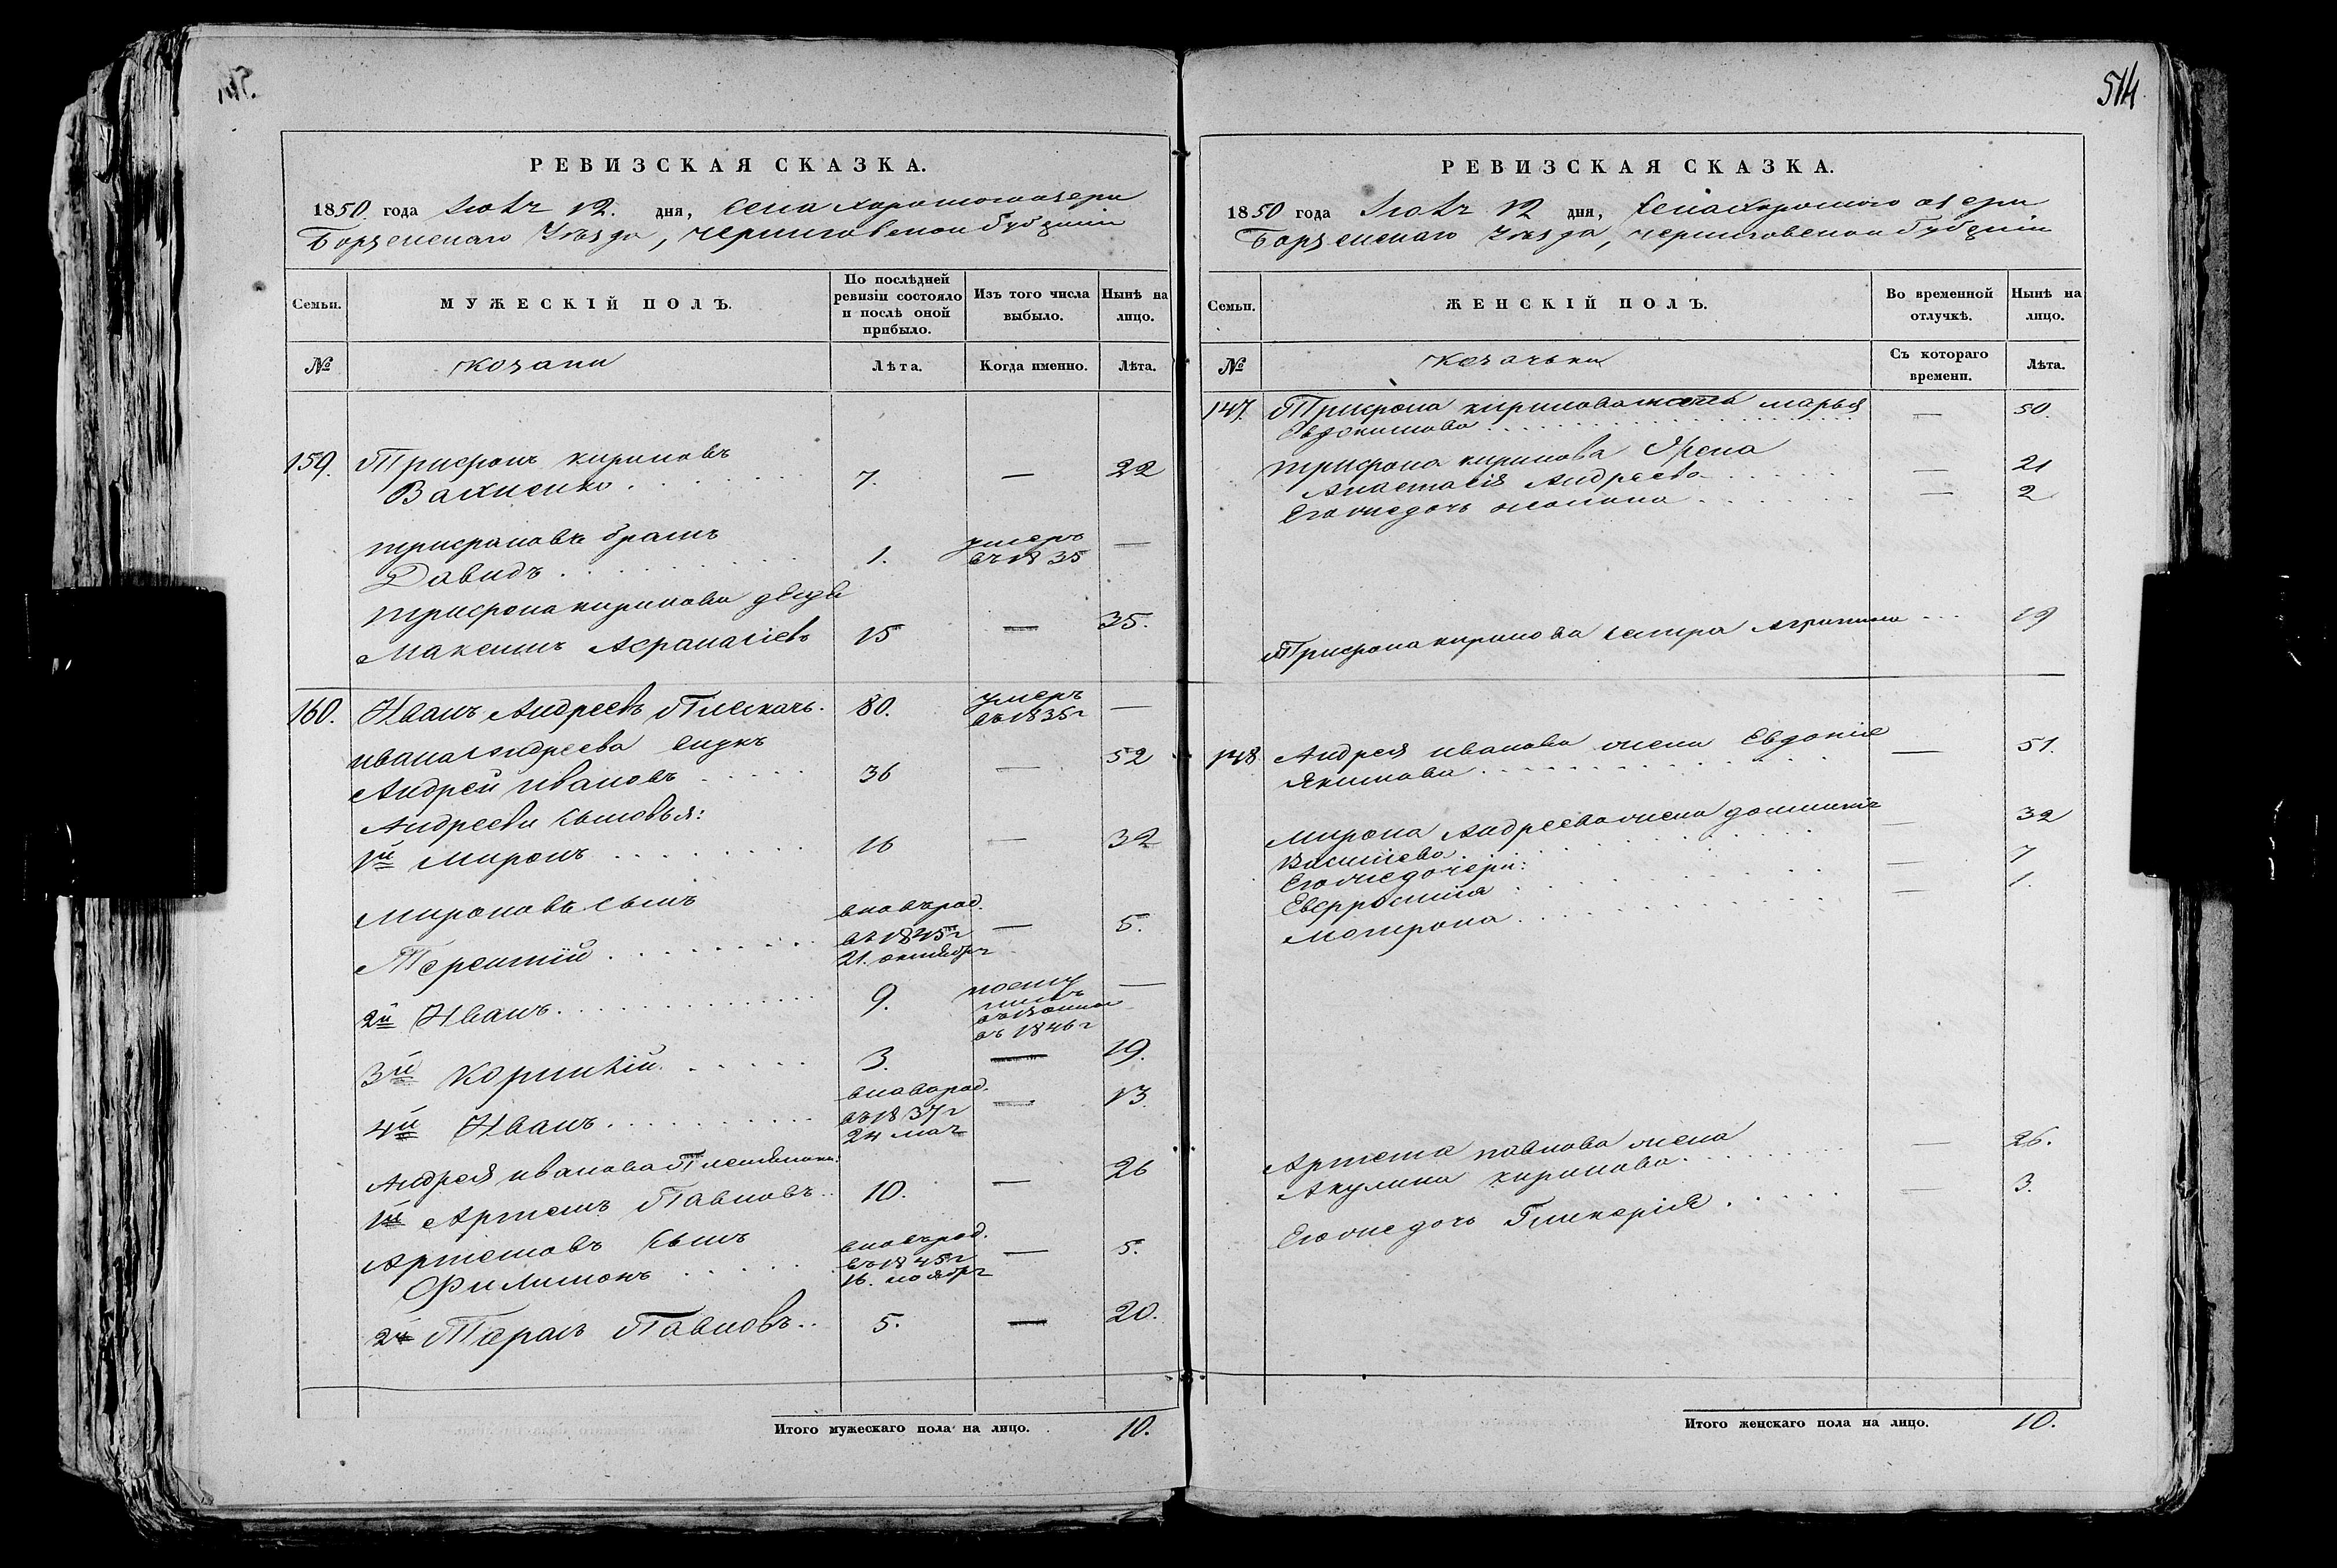 514
РЕВИЗСКАЯ СКАЗКА.
1850 года Июля 12. дня, Села Хорошогоозера
Борзенскаго Уезда, Черниговской Губернии
Семьи. МУЖЕСКІЙ ПОЛЪ. По послѣдней ревизіи состояло и послѣ оной прибыло. Изъ того числа выбыло. Нынѣ на лицо.
№ козаки Лѣта. Когда именно. Лѣта.
159. Трифонъ Кириловъ
Вахненко 7. — 22
Трифоновъ братъ умеръ
Давидъ 1. въ 1835 —
Трифона Кирилова дядя
Максимъ Афанасіевъ 15 — 35.
160. Иванъ Андреевъ Плескачь. 80. умеръ въ 1835 г —
Ивана Андреева внукъ
Андрей Ивановъ 36 — 52
Андреевы сыновья:
1й Миронъ 16 — 32
Мироновъ сынъ вновьрод.
Терентій въ 1845 г 21. октября — 5.
2й Иванъ 9. посту
пилъ
въ 1846 г —
3й Корнилій 3. — 19.
4й Иванъ вновьрод. въ 1837 г 24 мая — 13
Андрея Иванова Племянники:
1й Артемъ Павловъ 10. — 26
Артемовъ сынъ вновьрод.
Филимонъ въ 1845 г 16. ноября — 5.
2й Тарас Павловъ 5. — 20.
Итого мужескаго пола на лицо. 10.
РЕВИЗСКАЯ СКАЗКА.
1850 года Июля 12 дня, Села Хорошого озера
Борзенскаго Уезда, Черниговской Губернии
Семьи. ЖЕНСКІЙ ПОЛЪ. Во временной отлучкѣ. Нынѣ на лицо.
№ козачьки Съ котораго времени. Лѣта.
147. Трифона Кирилова мать Марья
Евдокимова — 50.
Трифона Кирилова жена
Анастасія Андреева — 21
Его же дочь — 2
Трифона Кирилова сестра Агрипина 19
148 Андрея Иванова жена Евдокія
Якимова — 51.
Мирона Андреева жена Домникія
Васильева — 32
Его же дочери:
Евфросинія — 7
Матрона — 1.
Артема Павлова жена
Акулина Кирилова — 26.
Его же дочь Гликерія — 3.
Итого женскаго пола на лицо. 10.